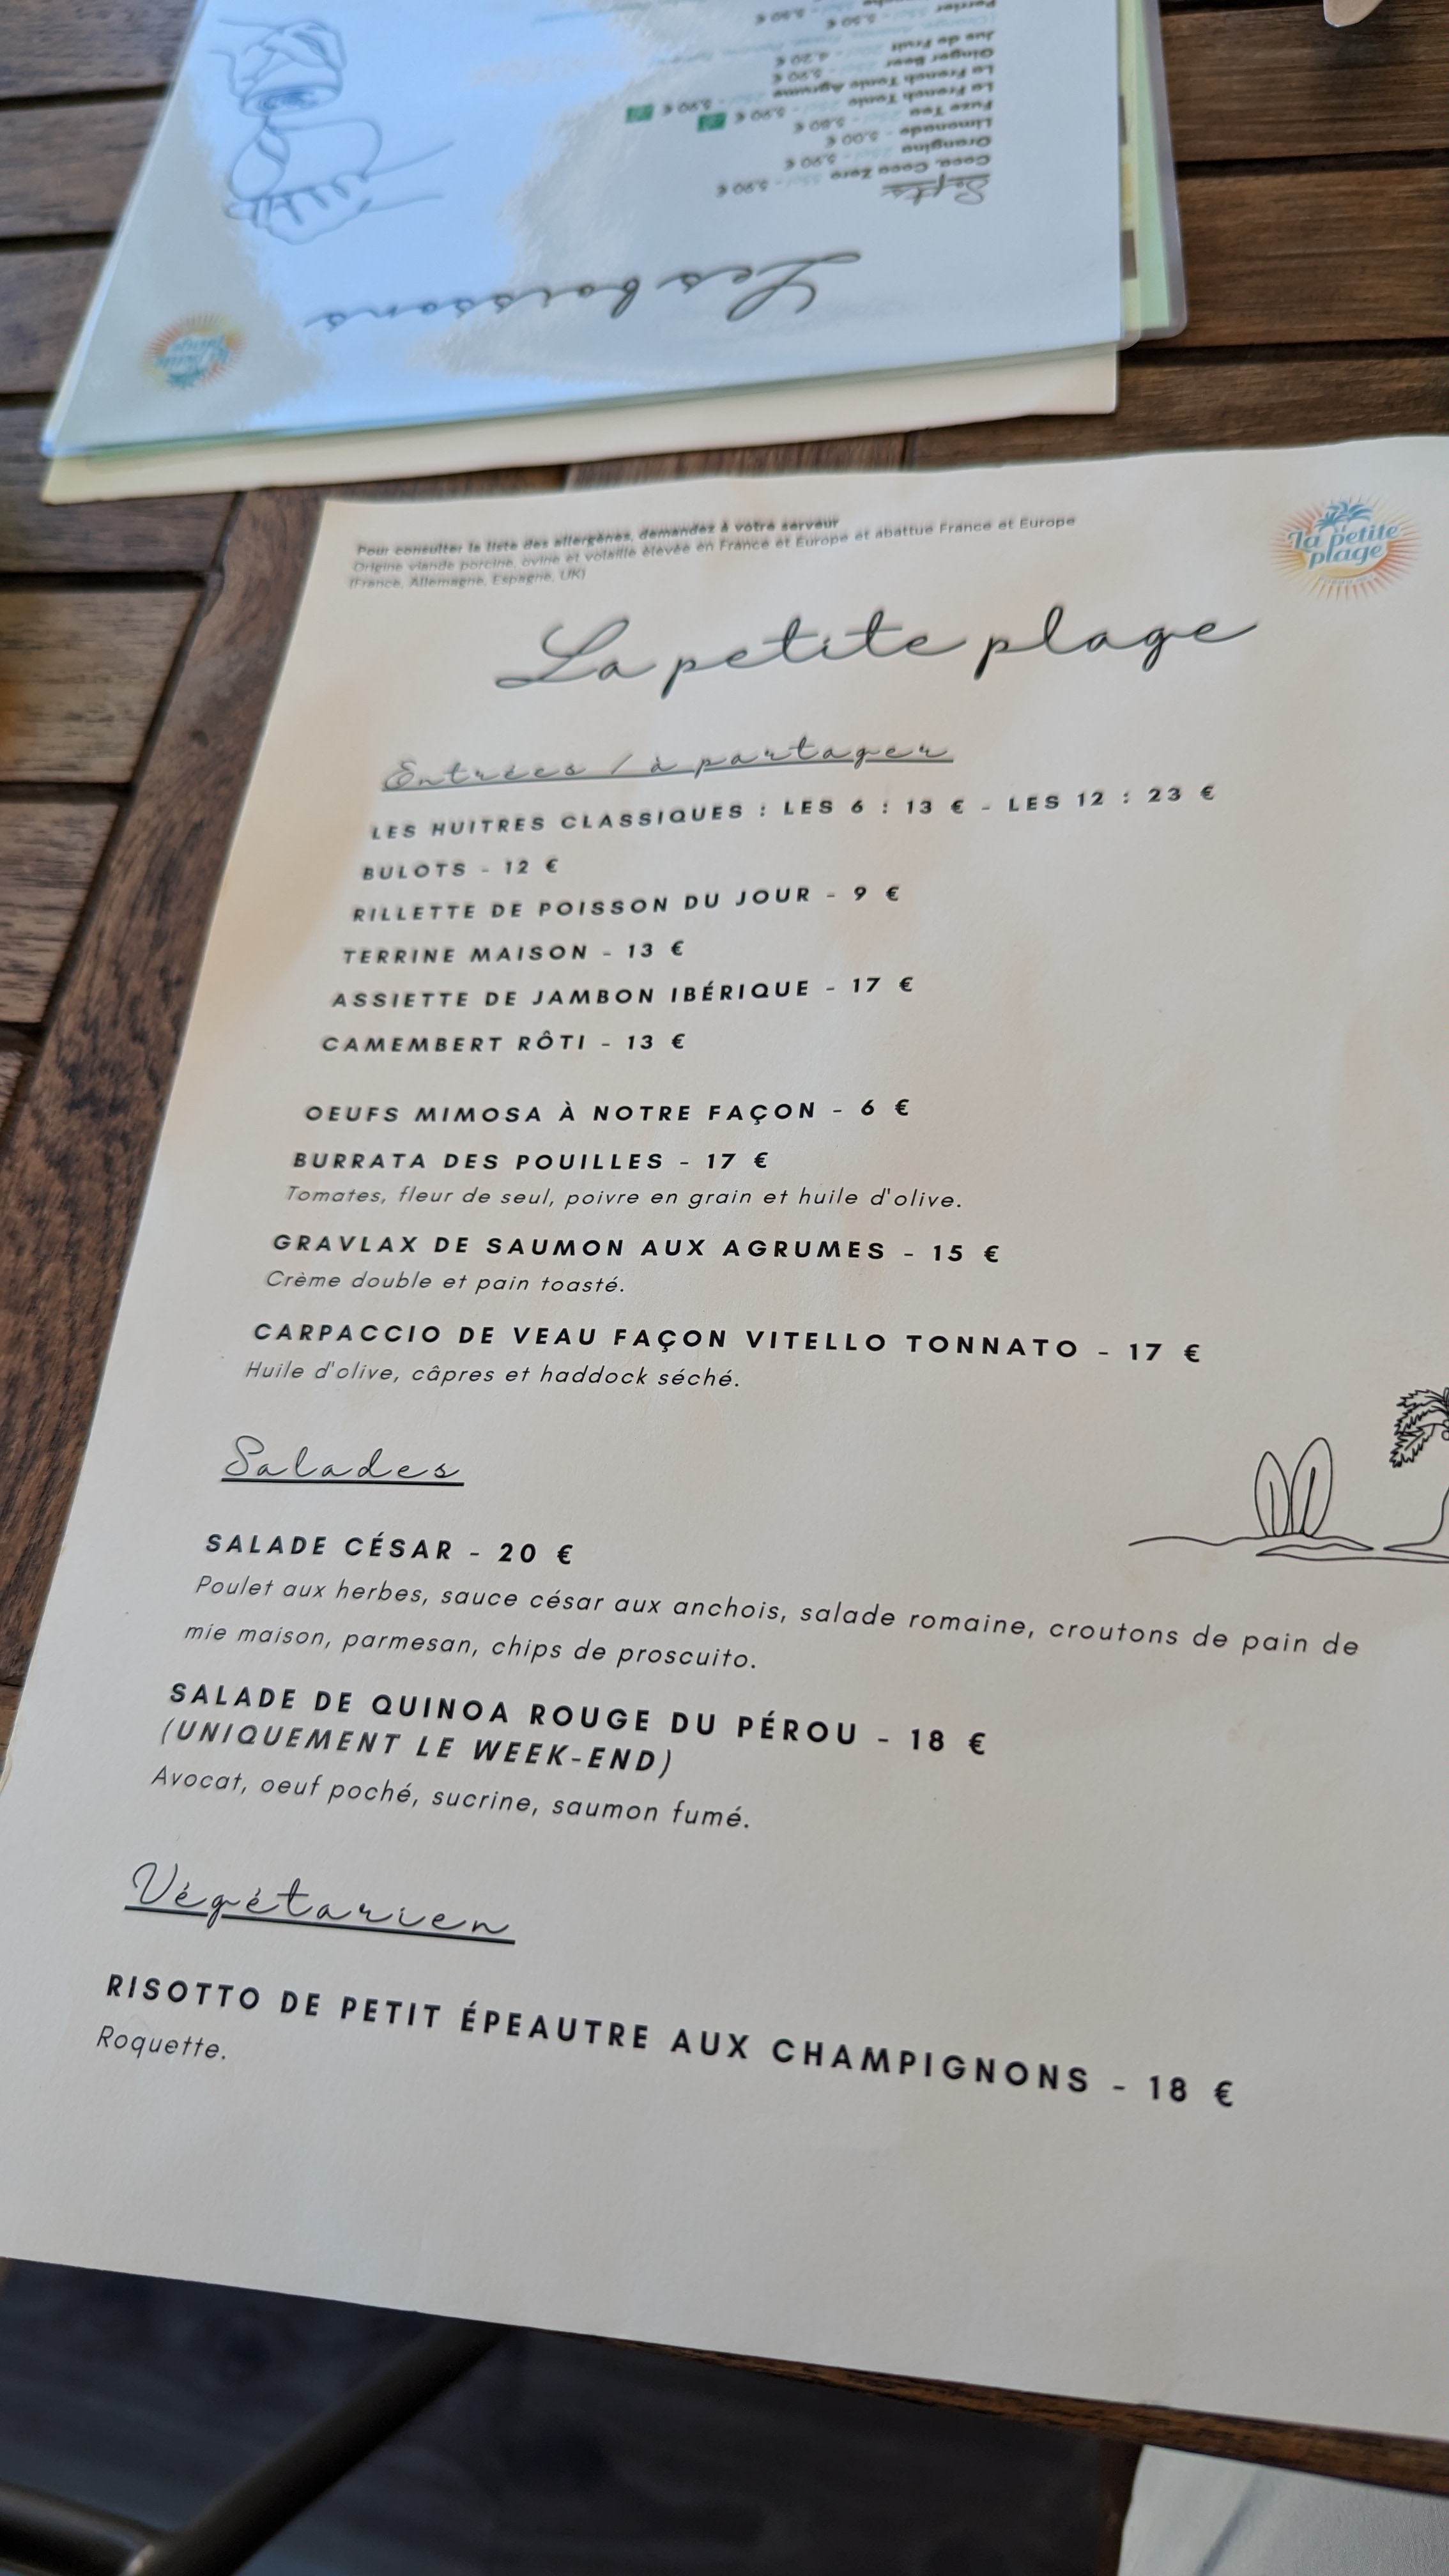 Les boissons
Softs
Coca, Coca Zero 33cl - 5.90 €
Orangina 25cl - 5.90 €
Limonade - 5.00 €
Fuze Tea 25cl - 5.80 €
La French Tonic 25cl - 5.90 €
La French Tonic Agrume 25cl - 5.90 €
Ginger Beer 25cl - 5.90 €
Jus de fruit 25cl - 4.20 €
Perrier 33cl - 5.50 €
la petite plage
Pour consulter la liste des allergènes, demandez à votre serveur
Origine viande porcine, ovine et volaille élevée en France et Europe et abattue France et Europe
(France, Allemagne, Espagne, UK)
la petite
plage
La petite plage
Entrées / à partager
LES HUITRES CLASSIQUES : LES 6 : 13 € - LES 12 : 23 €
BULOTS - 12 €
RILLETTE DE POISSON DU JOUR - 9 €
TERRINE MAISON - 13 €
ASSIETTE DE JAMBON IBÉRIQUE - 17 €
CAMEMBERT RÔTI - 13 €
OEUFS MIMOSA À NOTRE FAÇON - 6 €
BURRATA DES POUILLES - 17 €
Tomates, fleur de seul, poivre en grain et huile d'olive.
GRAVLAX DE SAUMON AUX AGRUMES - 15 €
Crème double et pain toasté.
CARPACCIO DE VEAU FAÇON VITELLO TONNATO - 17 €
Huile d'olive, câpres et haddock séché.
Salades
SALADE CÉSAR - 20 €
Poulet aux herbes, sauce césar aux anchois, salade romaine, croutons de pain de
mie maison, parmesan, chips de proscuito.
SALADE DE QUINOA ROUGE DU PÉROU - 18 €
(UNIQUEMENT LE WEEK-END)
Avocat, oeuf poché, sucrine, saumon fumé.
Végétarien
RISOTTO DE PETIT ÉPEAUTRE AUX CHAMPIGNONS - 18 €
Roquette.